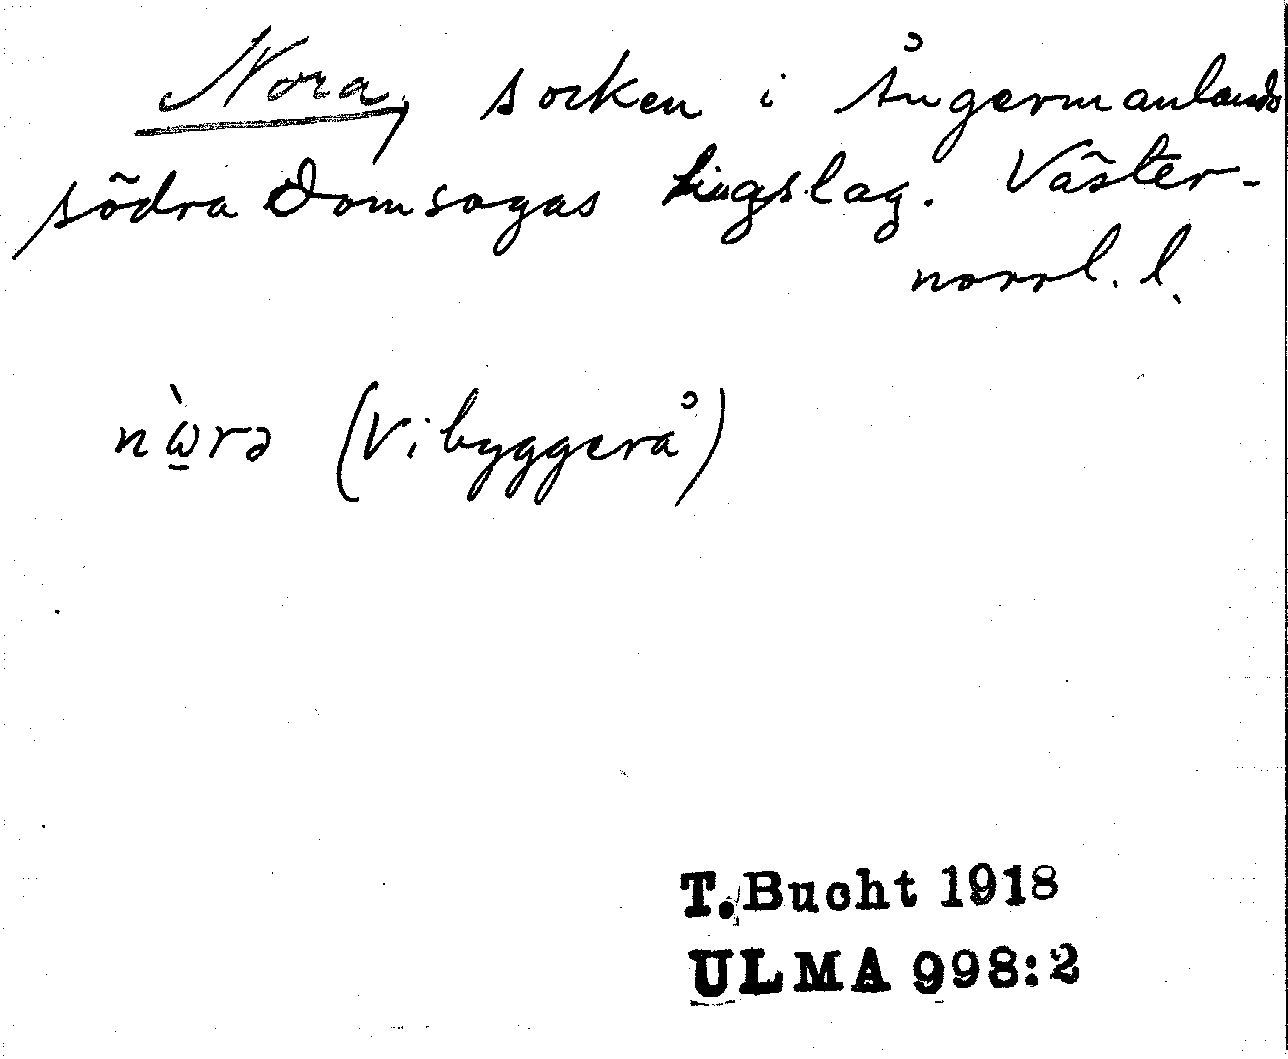 Nora, socken i Ångermanlands
södra Domsagas tingslag. Väster-
norrl. l.
nὼ̱rə (Vibyggerå)
T. Bucht 1918
ULMA 998:2